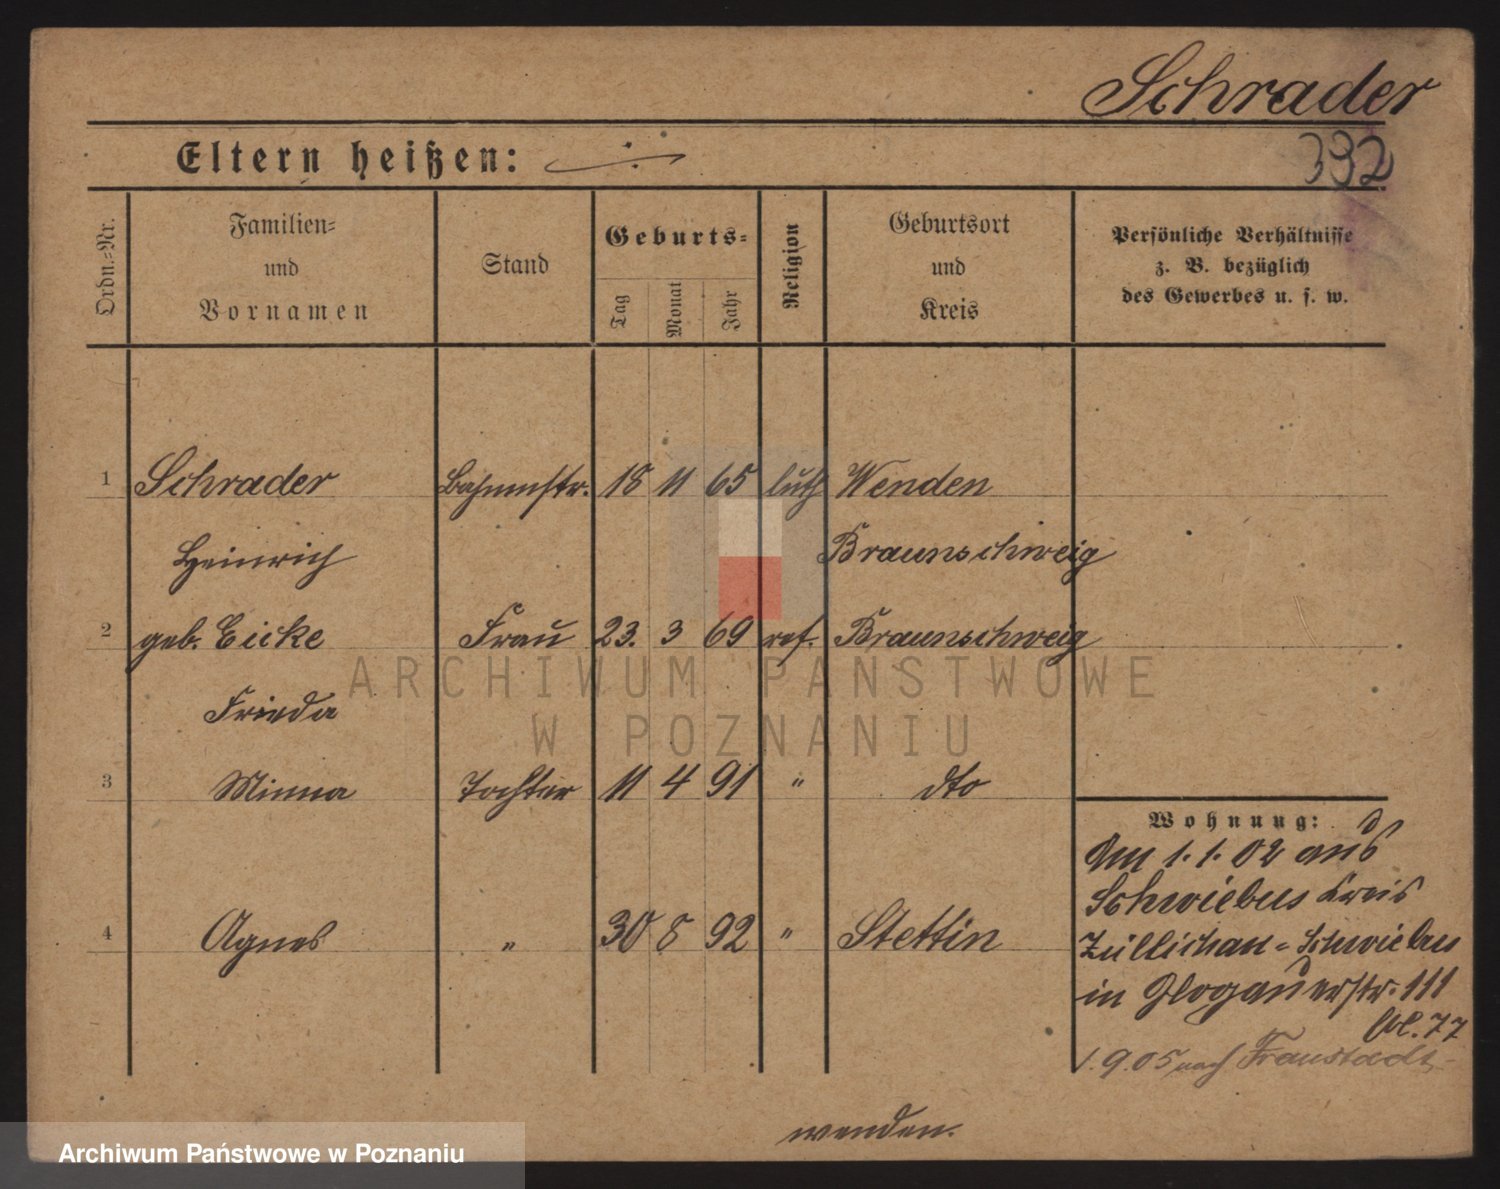 Schrader
Eltern heißen: ·/·
332
Ordn.=Nr.
Familien=
und
Vornamen
Stand
Geburts=
Tag
Monat
Jahr
Religion
Geburtsort
und
Kreis
Persönliche Verhältnisse
z. B. bezüglich
des Gewerbes u. s. w.
1 Schrader Bahnmstr. 18 11 65 luth Wenden
Heinrich Braunschweig
2 geb. Eicke Frau 23. 3 69 ref. Braunschweig
Frieda
3 Minna Tochter 11 4 91 " dto
4 Agnes " 30 8 92 " Stettin
Wohnung:
Am 1.1.02 aus
Schwiebus Kreis
Züllichau=Schwiebus
in Glogauerstr. 111
Bl. 77
1.9.05 nach Fraustadt
wenden.
ARCHIWUM PAŃSTWOWE
W POZNANIU
Archiwum Państwowe w Poznaniu